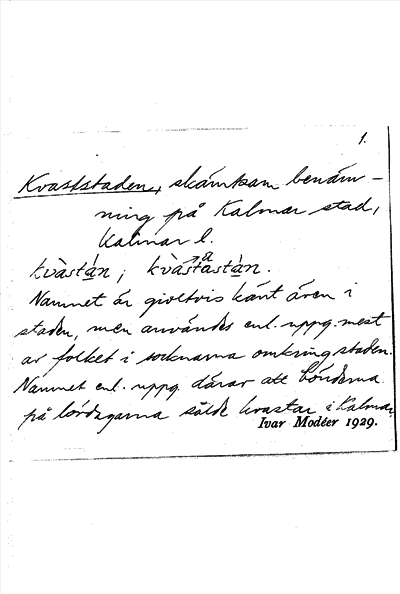 1.
Kvaststaden, skämtsam benäm-
ning på Kalmar stad,
Kalmar l.
kvàstán; kvàstastán.
Namnet är givetvis känt även i
staden, men användes enl. uppg. mest
av folket i socknarna omkring staden.
Namnet enl. uppg. därav att bönderna
på lördagarna sålde kvastar i Kalmar.
Ivar Modéer 1929.